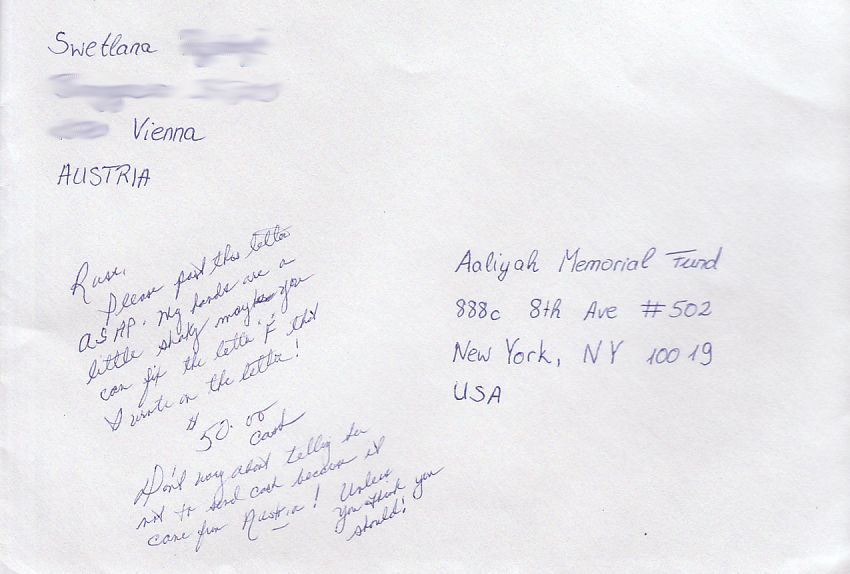 Swetlana
Vienna
AUSTRIA
Aaliyah Memorial Fund
888c 8th Ave #502
New York, NY 10019
USA
Please post this letter
ASAP. My hands are a
little shaky maybe you
can fix the letter F that
I wrote on the letter!
$50.00
cash
Don't worry about telling her
not to send cash because it
came from Austria! Unless
you think you
should!